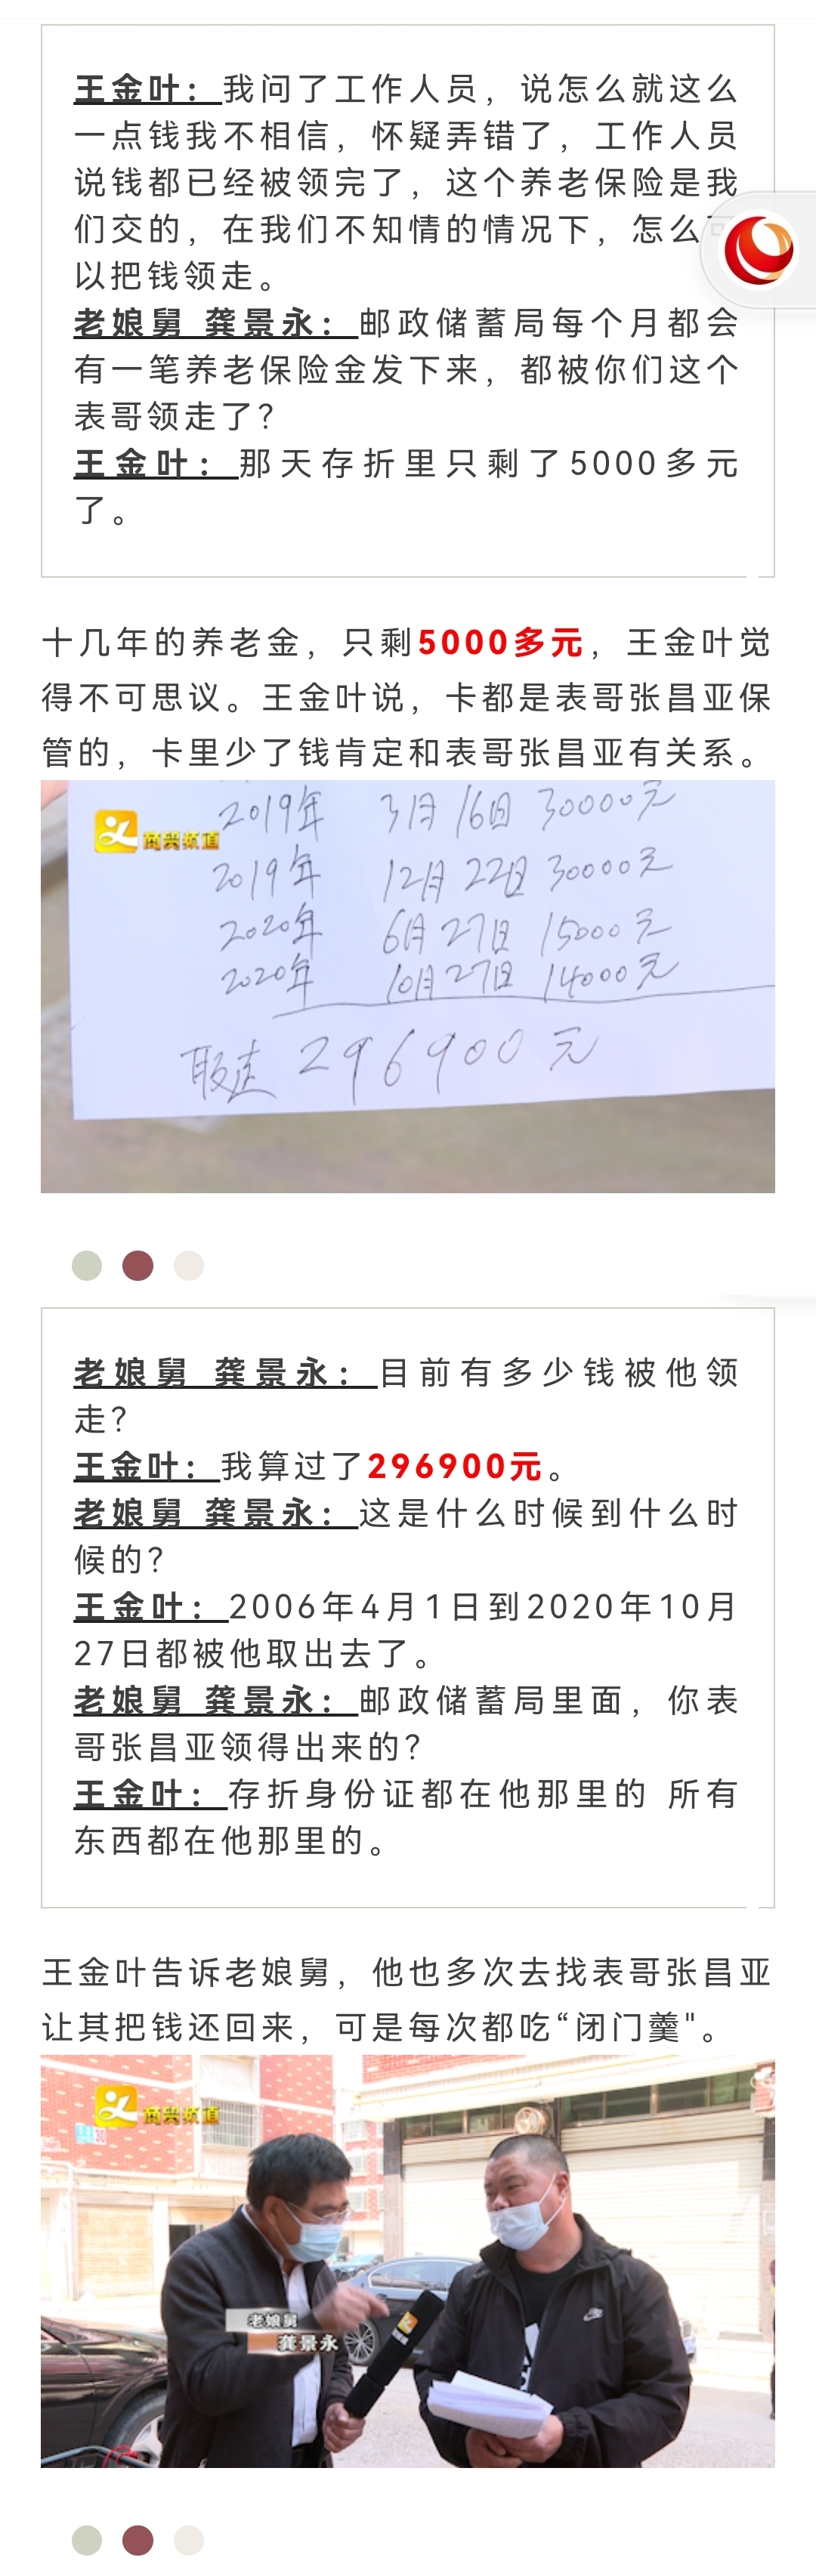 王金叶：我问了工作人员，说怎么就这么
一点钱我不相信，怀疑弄错了，工作人员
说钱都已经被领完了，这个养老保险是我
们交的，在我们不知情的情况下，怎么可
以把钱领走。
老娘舅 龚景永：邮政储蓄局每个月都会
有一笔养老保险金发下来，都被你们这个
表哥领走了？
王金叶：那天存折里只剩了5000多元
了。
十几年的养老金，只剩5000多元，王金叶觉
得不可思议。王金叶说，卡都是表哥张昌亚保
管的，卡里少了钱肯定和表哥张昌亚有关系。
商贸频道
2019年 3月16日 30000元
2019年 12月22日 30000元
2020年 6月27日 15000元
2020年 10月27日 14000元
取走 296900元
老娘舅 龚景永：目前有多少钱被他领
走？
王金叶：我算过了296900元。
老娘舅 龚景永：这是什么时候到什么时
候的？
王金叶：2006年4月1日到2020年10月
27日都被他取出去了。
老娘舅 龚景永：邮政储蓄局里面，你表
哥张昌亚领得出来的？
王金叶：存折身份证都在他那里的 所有
东西都在他那里的。
王金叶告诉老娘舅，他也多次去找表哥张昌亚
让其把钱还回来，可是每次都吃“闭门羹"。
商贸频道
老娘舅
龚景永